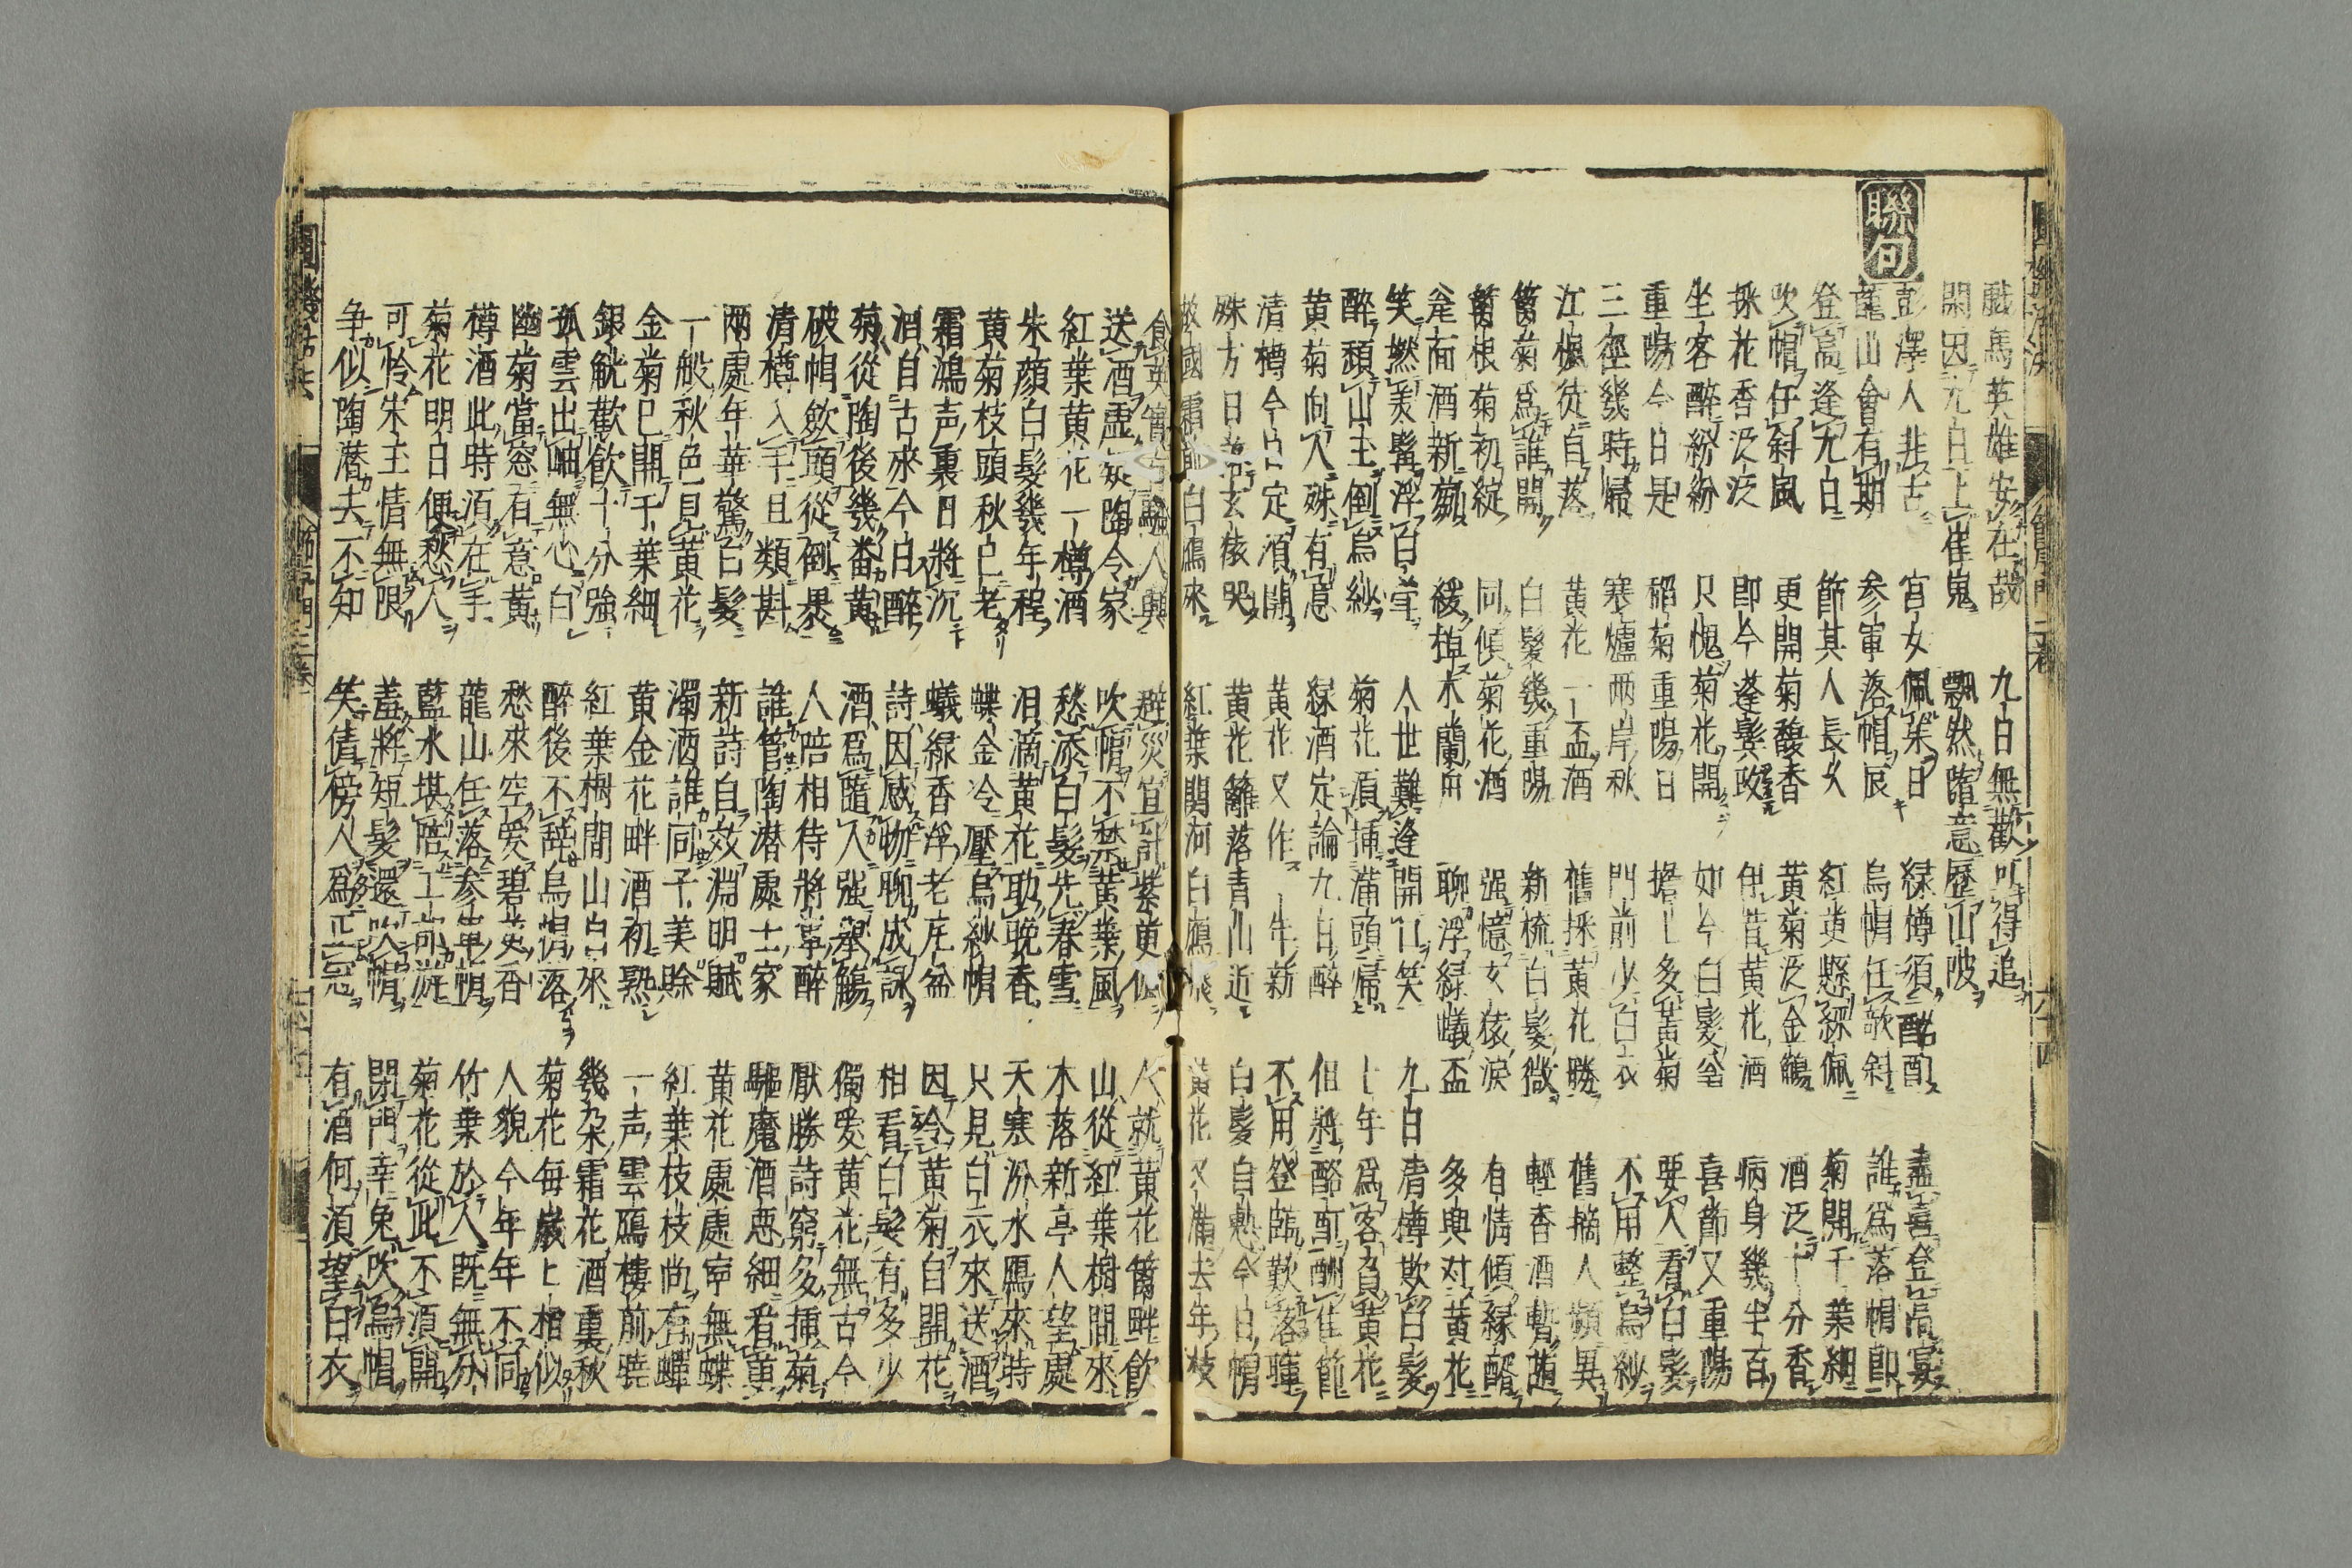 戲馬英雄安在哉　九日無歡可得追
閑因九日上崔嵬　飄然隨意歷山陂
聯句
彭澤人非古　宮女佩茱日　綠樽須酩酊　盡喜登高宴
龍山會有期　参軍落帽辰　烏帽任欹斜　誰爲落帽即
登高逢九日　節其人長久　紅萸懸經佩　菊開千葉細
吹帽任斜風　更開菊馥香　黄菊泛金觴　酒泛十分香
採花香泛泛　即今蓬鬢改　伊昔黄花酒　病身幾半百
坐客醉紛紛　只愧菊花開　如今白髮翁　喜節又重陽
重陽今日是　稲菊重陽日　擔上多黄菊　要人看白髮
三徑幾時帰　寒爐两岸秋　門前少白衣　不用整烏紗
江楓徒自落　黄花一盃酒　舊採黄花勝　舊摘人頻異
籬菊爲誰開　白髮幾重陽　新梳白髮微　輕香酒暫随
籬根菊初綻　同傾菊花酒　强憶女猿淚　有情傾綠醑
瓮面酒新蒭　緩棹木蘭舟　聊浮綠蟻盃　多興対黄花
笑撚羙髯浮白堂　人世難逢開口笑　九日清樽欺白髮
醉頽山玉倒烏紗　菊花須挿滿頭帰　十年爲客負黄花
黄菊向人殊有意　綠酒定論九日醉　但將酩酊酬佳節
清樽今日定須開　黄花又作一年新　不用登臨歎落暉
殊方日落玄猿哭　黄花籬落青山近　白髮自愁今日帽
故國霜前白鴈來　紅葉関河白鴈飛　黄花又満去年枝
食英寧与騒人興　避災宜討紫萸佩　人就黄花籬畔飲
送酒虛疑陶令家　吹帽不禁黄葉風　山從紅葉樹間來
紅葉黄花一樽酒　愁添白髮先春雪　木落新亭人望處
朱顔白髮幾年程　泪滴黄花助晩香　天寒汾水鴈來時
黄菊枝頭秋已老　蝶金冷壓烏紗帽　只見白衣來送酒
霜鴻声裏日將沉　蟻綠香浮老庄盆　因吟黄菊自開花
酒自古來今日醉　詩因感物聊成詠　相看白髮有多少
菊從陶後幾畨黄　酒爲隨人强舉觴　獨爱黄花無古今
破帽歛頭從倒畏　人陪相待將寧醉　厭勝詩窮多挿菊
清樽入手且類斟　誰管陶潜處士家　驅魔酒惡細看黄
兩處年華驚白髮　新詩自效淵明賦　黄花處處寧無蝶
一般秋色見黄花　濁酒誰同子美賒　紅葉枝枝尚有蟬
金菊已開千葉細　黄金花畔酒初熟　一声雲鴈樓前曉
銀觥歡飲十分強　紅葉樹間山自來　幾朶霜花酒裏秋
孤雲出岫無心白　醉後不辭烏帽落　菊花毎歳上相似
幽菊當窓有意黄　愁來空爱碧萸香　人貌今年年不同
樽酒此時湏在手　龍山任落参軍帽　竹葉於人既無分
菊花明日便愁人　藍水堪陪工部遊　菊花從此不湏開
可怜朱玉情無限　羞將短髮還吹帽　閉門幸免吹烏帽
争似陶潜去不知　笑倩傍人爲正冠　有酒何湏望白衣